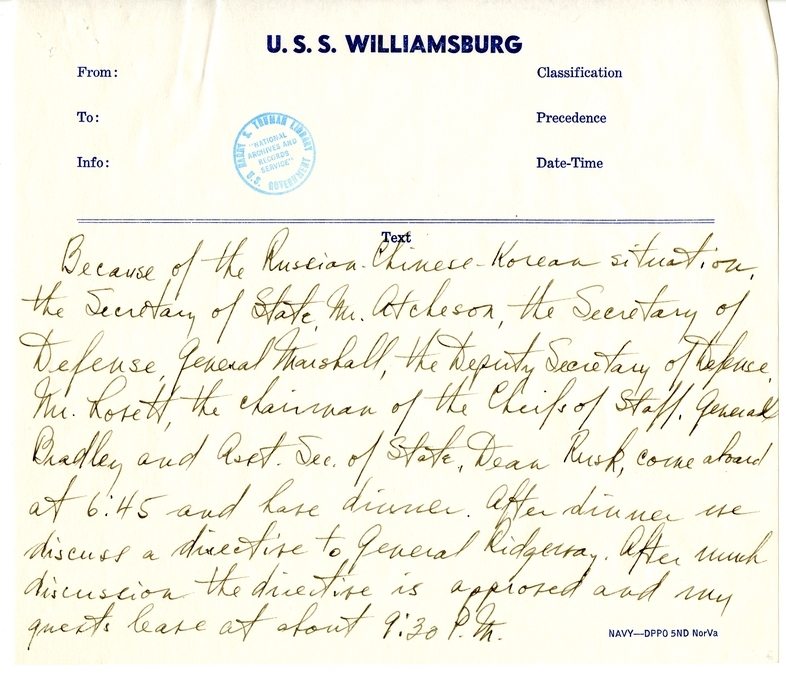 U. S. S. WILLIAMSBURG
From: Classification
To: Precedence
Info: Date-Time
HARRY S. TRUMAN LIBRARY
"NATIONAL
ARCHIVES AND
RECORDS
SERVICE"
U.S. GOVERNMENT
Text
Because of the Russian-Chinese-Korean situation,
the Secretary of State, Mr. Atcheson, the Secretary of
Defense, General Marshall, the Deputy Secretary of Defense,
Mr. Lovett, the chairman of the Cheifs of Staff, General
Bradley and Asst. Sec. of State, Dean Rusk, come aboard
at 6:45 and have dinner. After dinner we
discuss a directive to General Ridgeway. After much
discussion the directive is approved and my
guests leave at about 9:30 P.M.
NAVY—DPPO 5ND NorVa